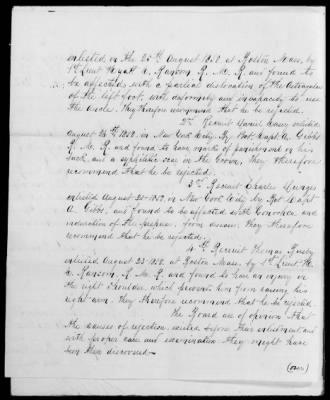 enlisted on the 25th August 1852. at Boston Mass, by
1st Lieut Hyatt C. Ransom R. M. R. and found to
be affected with a partial dislocation of the Astragalus
of the left foot, with deformity and incapacity to use
the Ancle. They therefore recommend that he be rejected.
2d Recruit Daniel enlisted
August 24th 1852. in New York City By Bvt. Capt. A. Gibbs
R. M. R. and found to have marks of punishment on his
back, and a syphilitic scar in the Groin, they therefore
recommend that he be rejected.
3d Recruit Charles
enlisted August 20. 1852. in New York City by Bvt Capt
A. Gibbs, and found to be affected with Gonorrhea and
induration of the prepuce, from disease, they therefore
recommend that he be rejected.
4th Recruit Thomas
enlisted August 23. 1852. at Boston Mass, by 1st Lieut H.
C. Ransom R. M. R. and found to have an injury in
the right shoulder, which prevents him from raising his
right arm. They therefore recommend that he be rejected
The Board are of opinion that
the causes of rejection, existed before their enlistment and
with proper care and examination they might have
been then discovered.
(over)